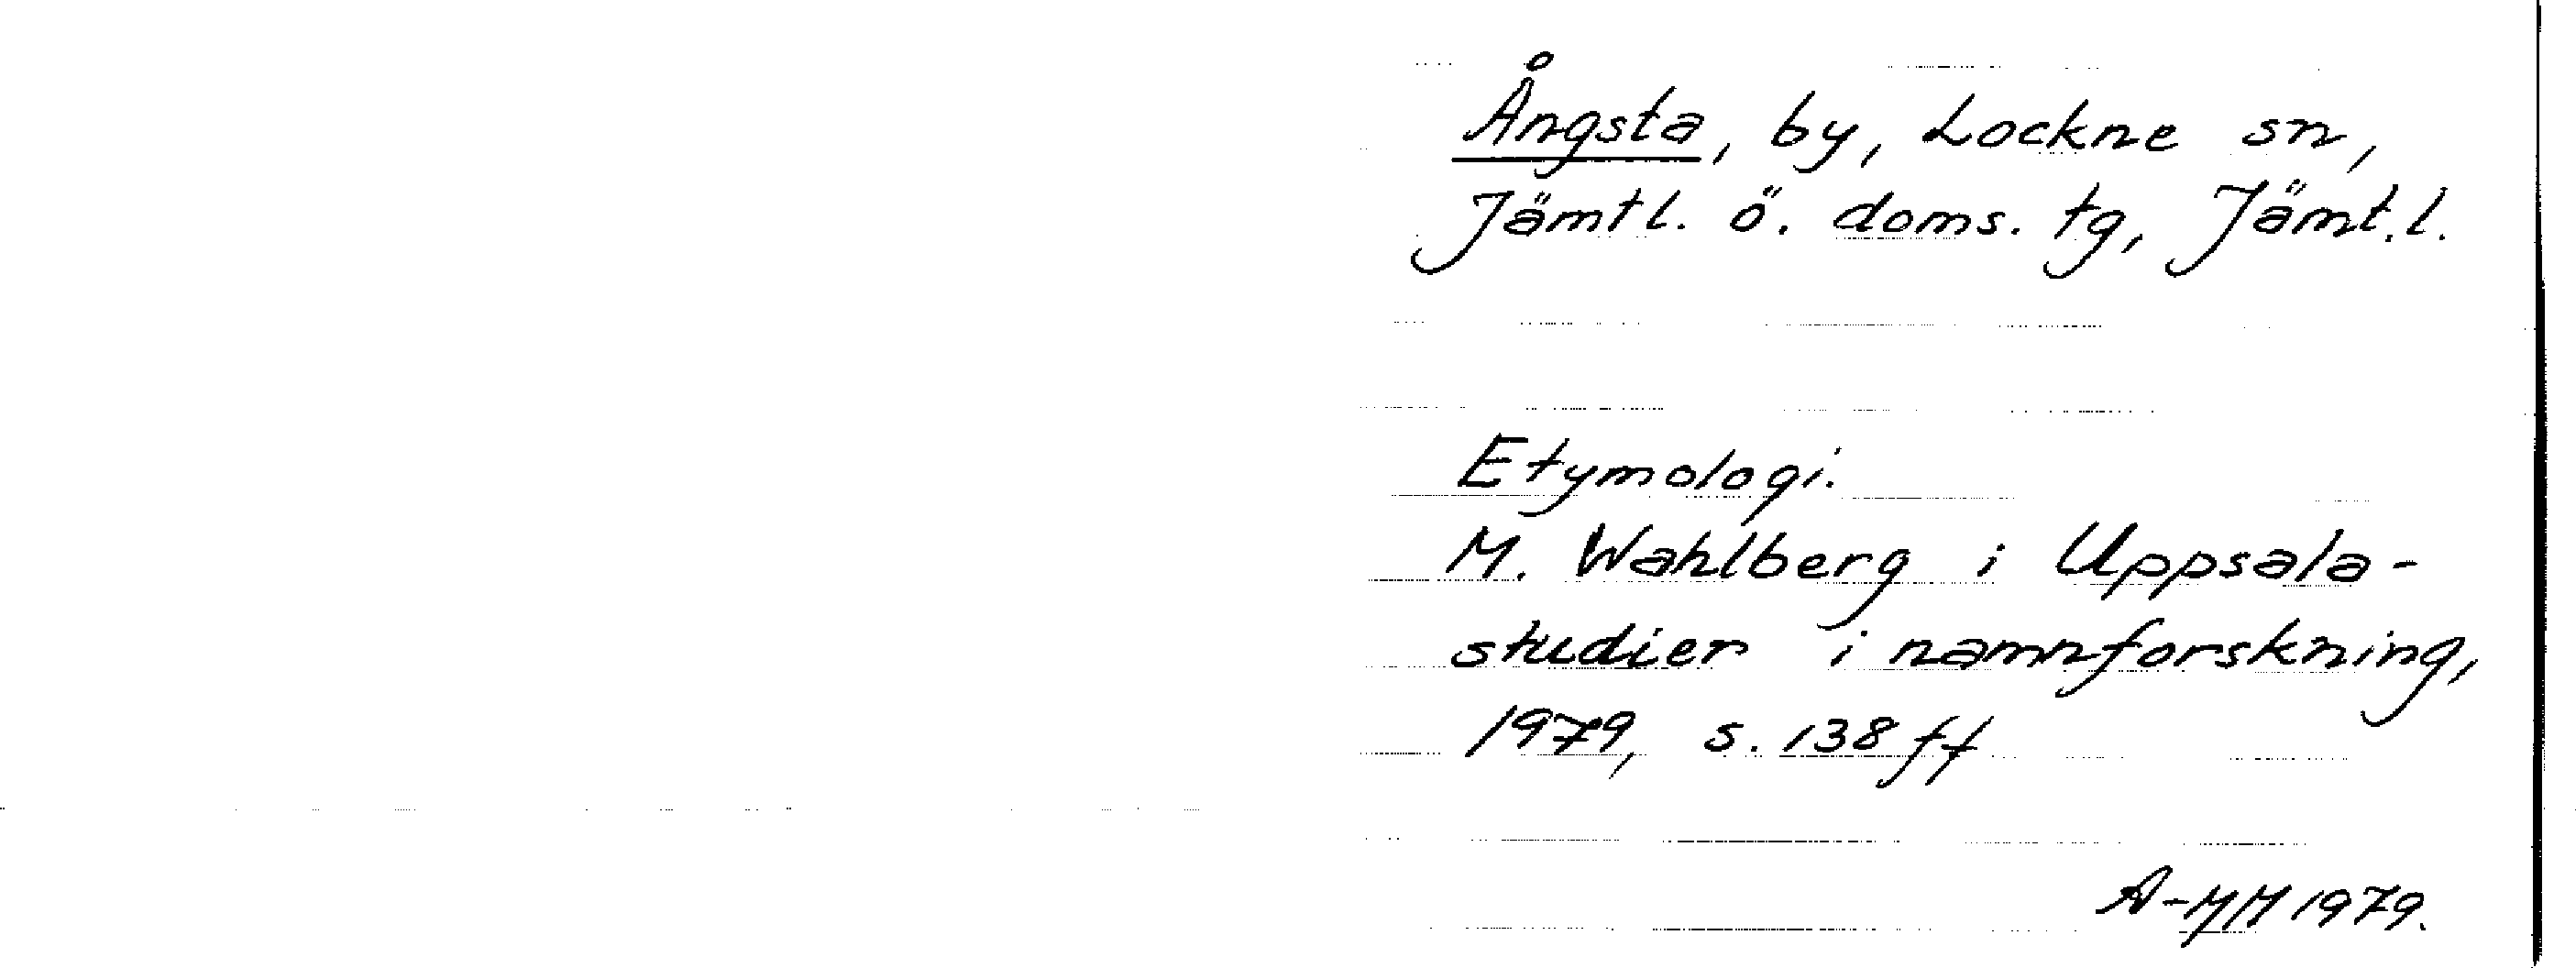 Ångsta, by, Lockne sn,
Jämtl. ö. doms. tg, Jämt.l.
Etymologi.
M. Wahlberg i Uppsala-
studier i namnforskning,
1979, s. 138 ff
A-MM 1979.